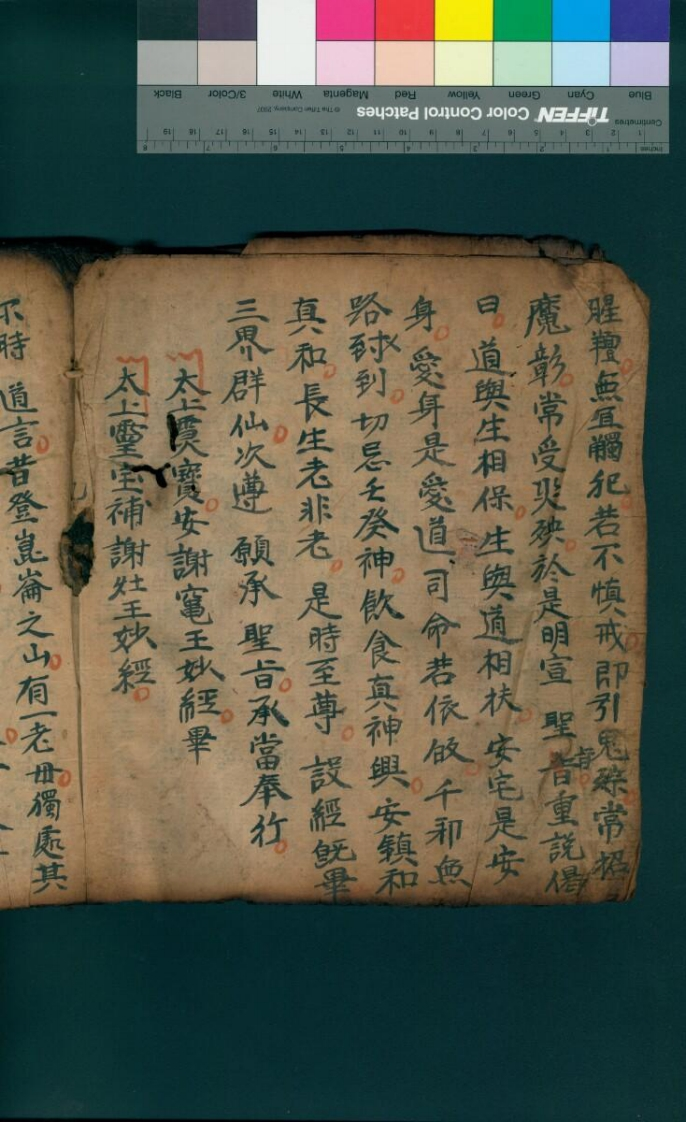 腥羶無宜觸犯若不慎戒即引鬼殃常招
魔彰常受災殃於是明宣 聖旨重説偈
曰 道與生相保生與道相扶安宅是安
身愛身是愛道司命若依啟千和無
路到切忌壬癸神飲食真神興安鎮和
真和長生老非老 是時至尊 説經既畢
三界群仙次遵 願承 聖旨承當奉行
太上靈寶安謝竃王妙經畢
太上靈宝補謝灶王妙經
不時 道言昔登崑崙之山有一老母獨處其
Blue Cyan Green Yellow Red Magenta White 3/Color Black
TIFFEN Color Control Patches
© The Tiffen Company, 2007
Centimetres 1 2 3 4 5 6 7 8 9 10 11 12 13 14 15 16 17 18 19
Inches 1 2 3 4 5 6 7 8